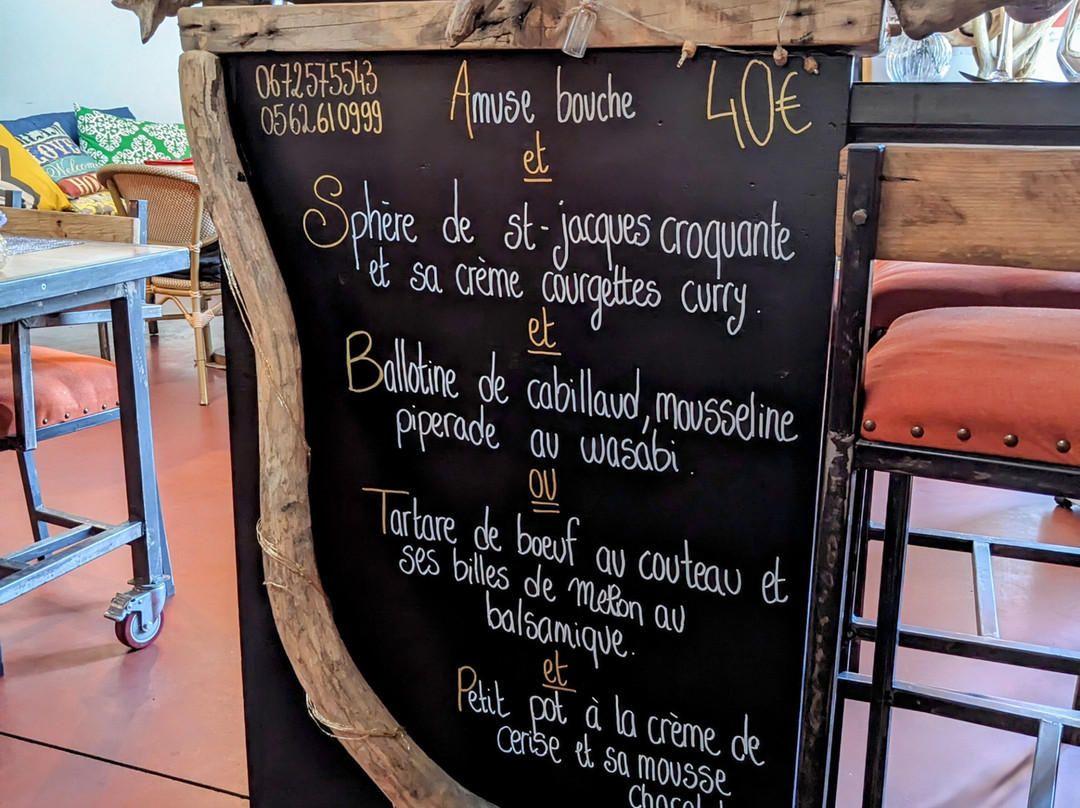 0672575543
0562610999
Amuse bouche
40€
et
Sphère de st-jacques croquante
et sa crème courgettes curry.
et
Ballotine de cabillaud, mousseline
piperade au wasabi.
ou
Tartare de boeuf au couteau et
ses billes de melon au
balsamique.
et
Petit pot à la crème de
cerise et sa mousse
LOVE
Welcome